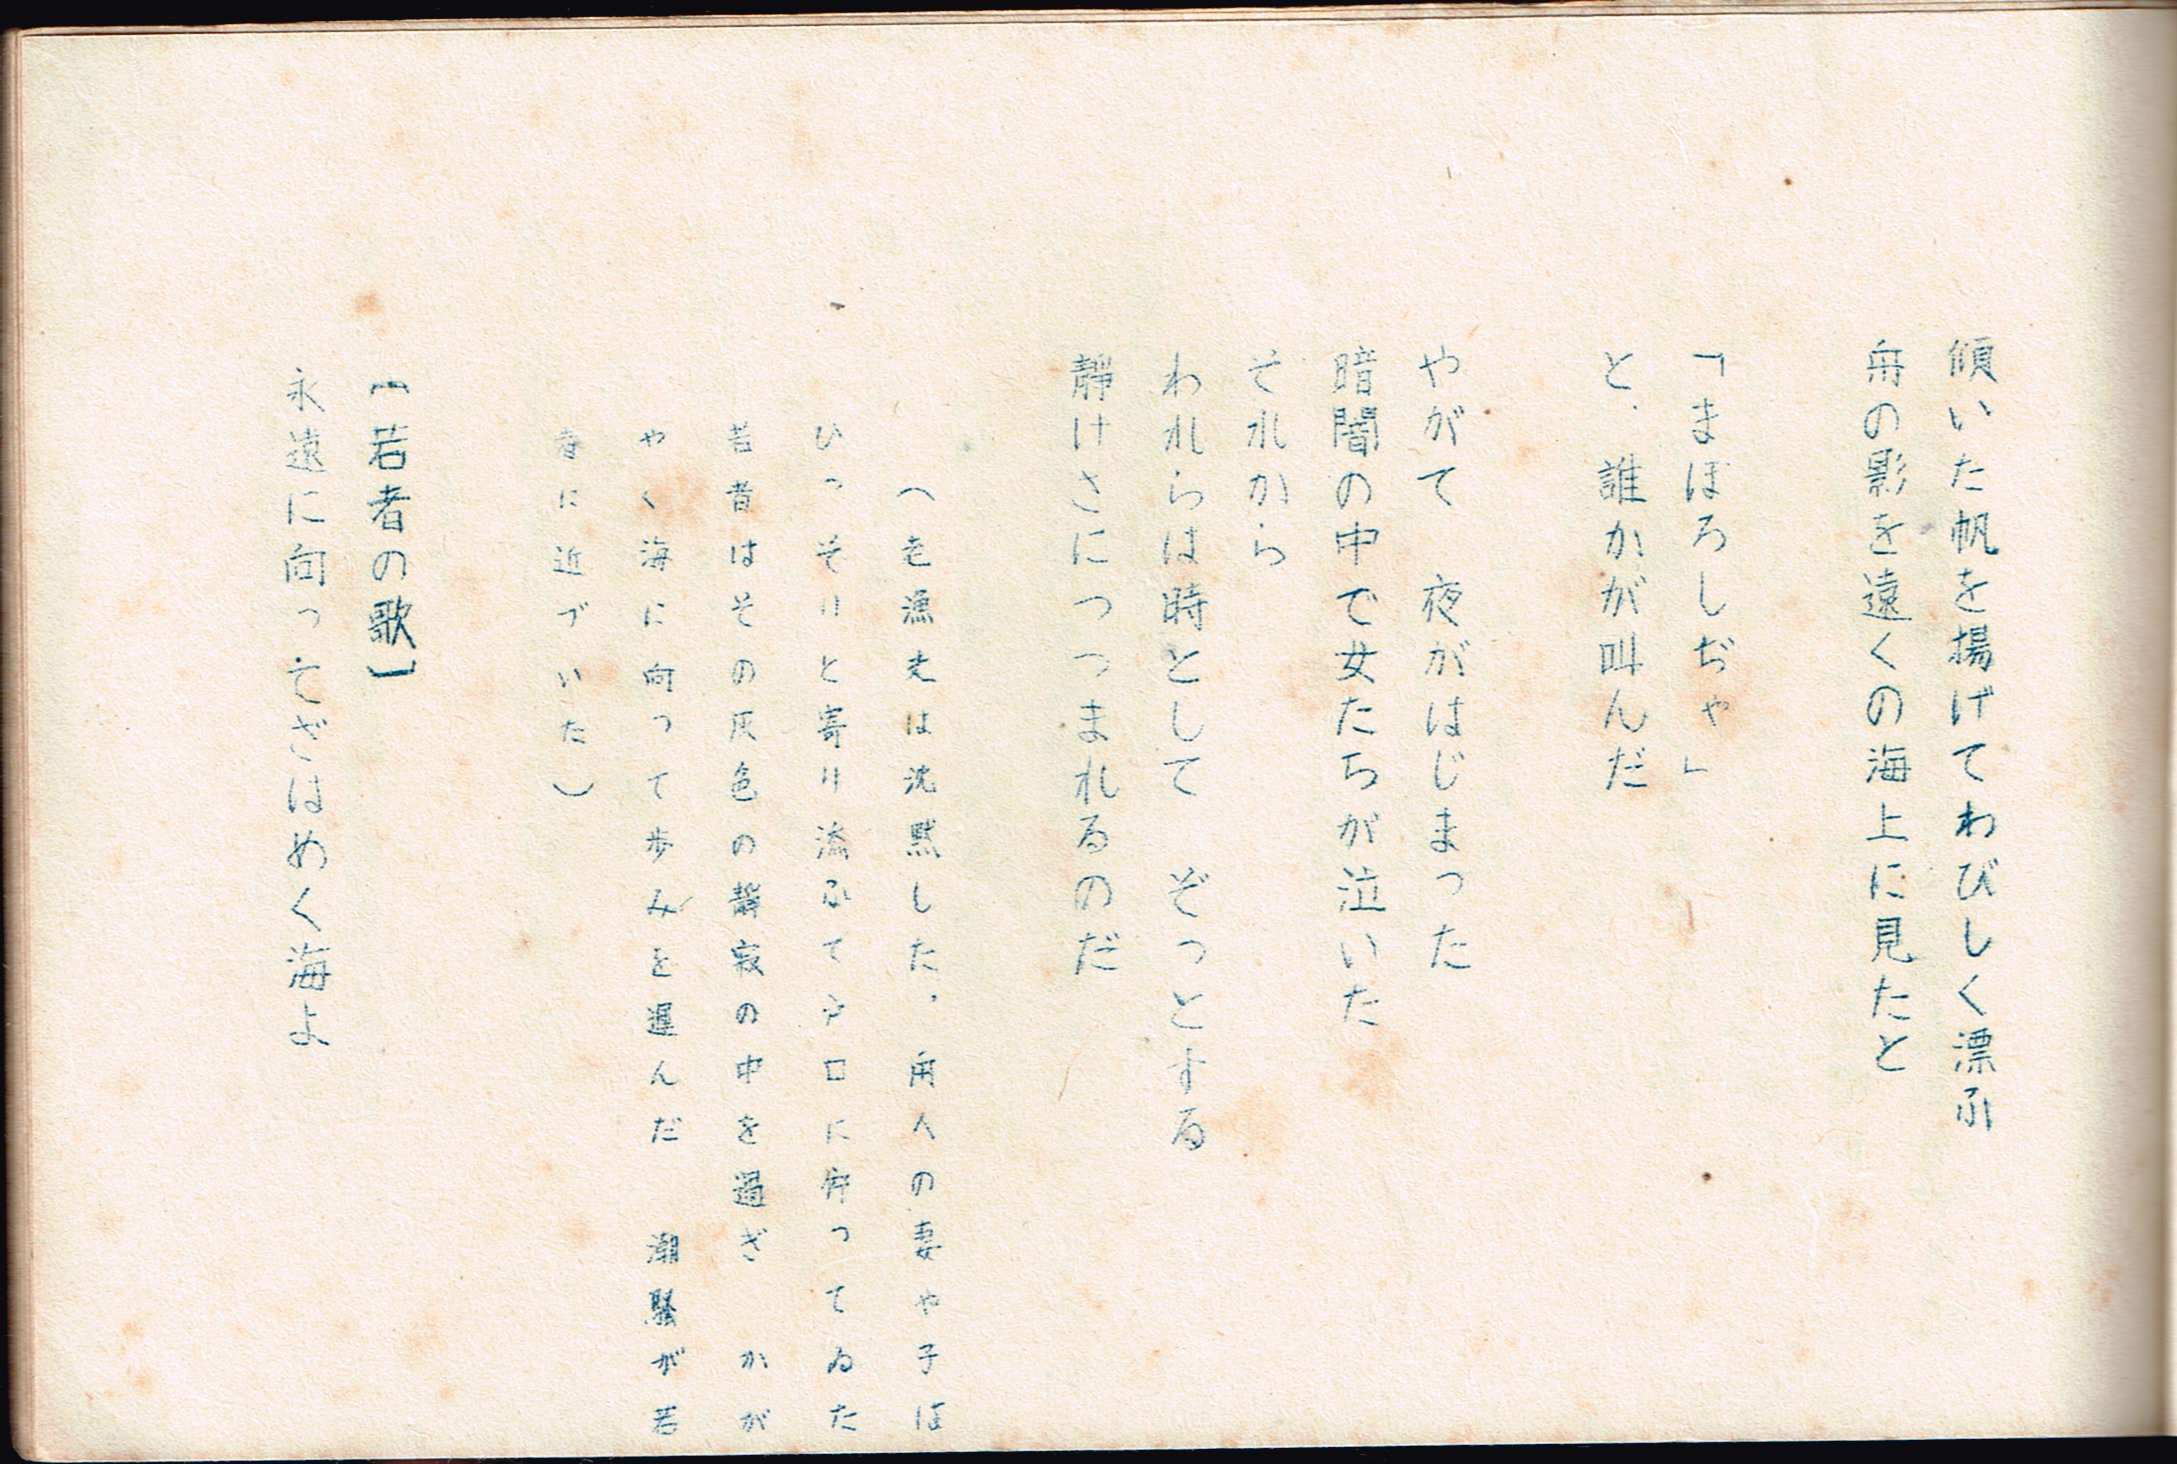 傾いた帆を揚げてわびしく漂ふ
舟の影を遠くの海上に見たと
「まぼろしぢゃ」
と、誰かが叫んだ
やがて　夜がはじまった
暗闇の中で女たちが泣いた
それから
われらは時として　ぞっとする
静けさにつつまれるのだ
（老漁夫は沈黙した、舟人の妻や子は
ひっそりと寄り添ふて戸口に佇ってゐた
若者はその灰色の静寂の中を過ぎ　かが
やく海に向って歩みを運んだ　潮騒が若
者に近づいた）
【若者の歌】
永遠に向ってざはめく海よ